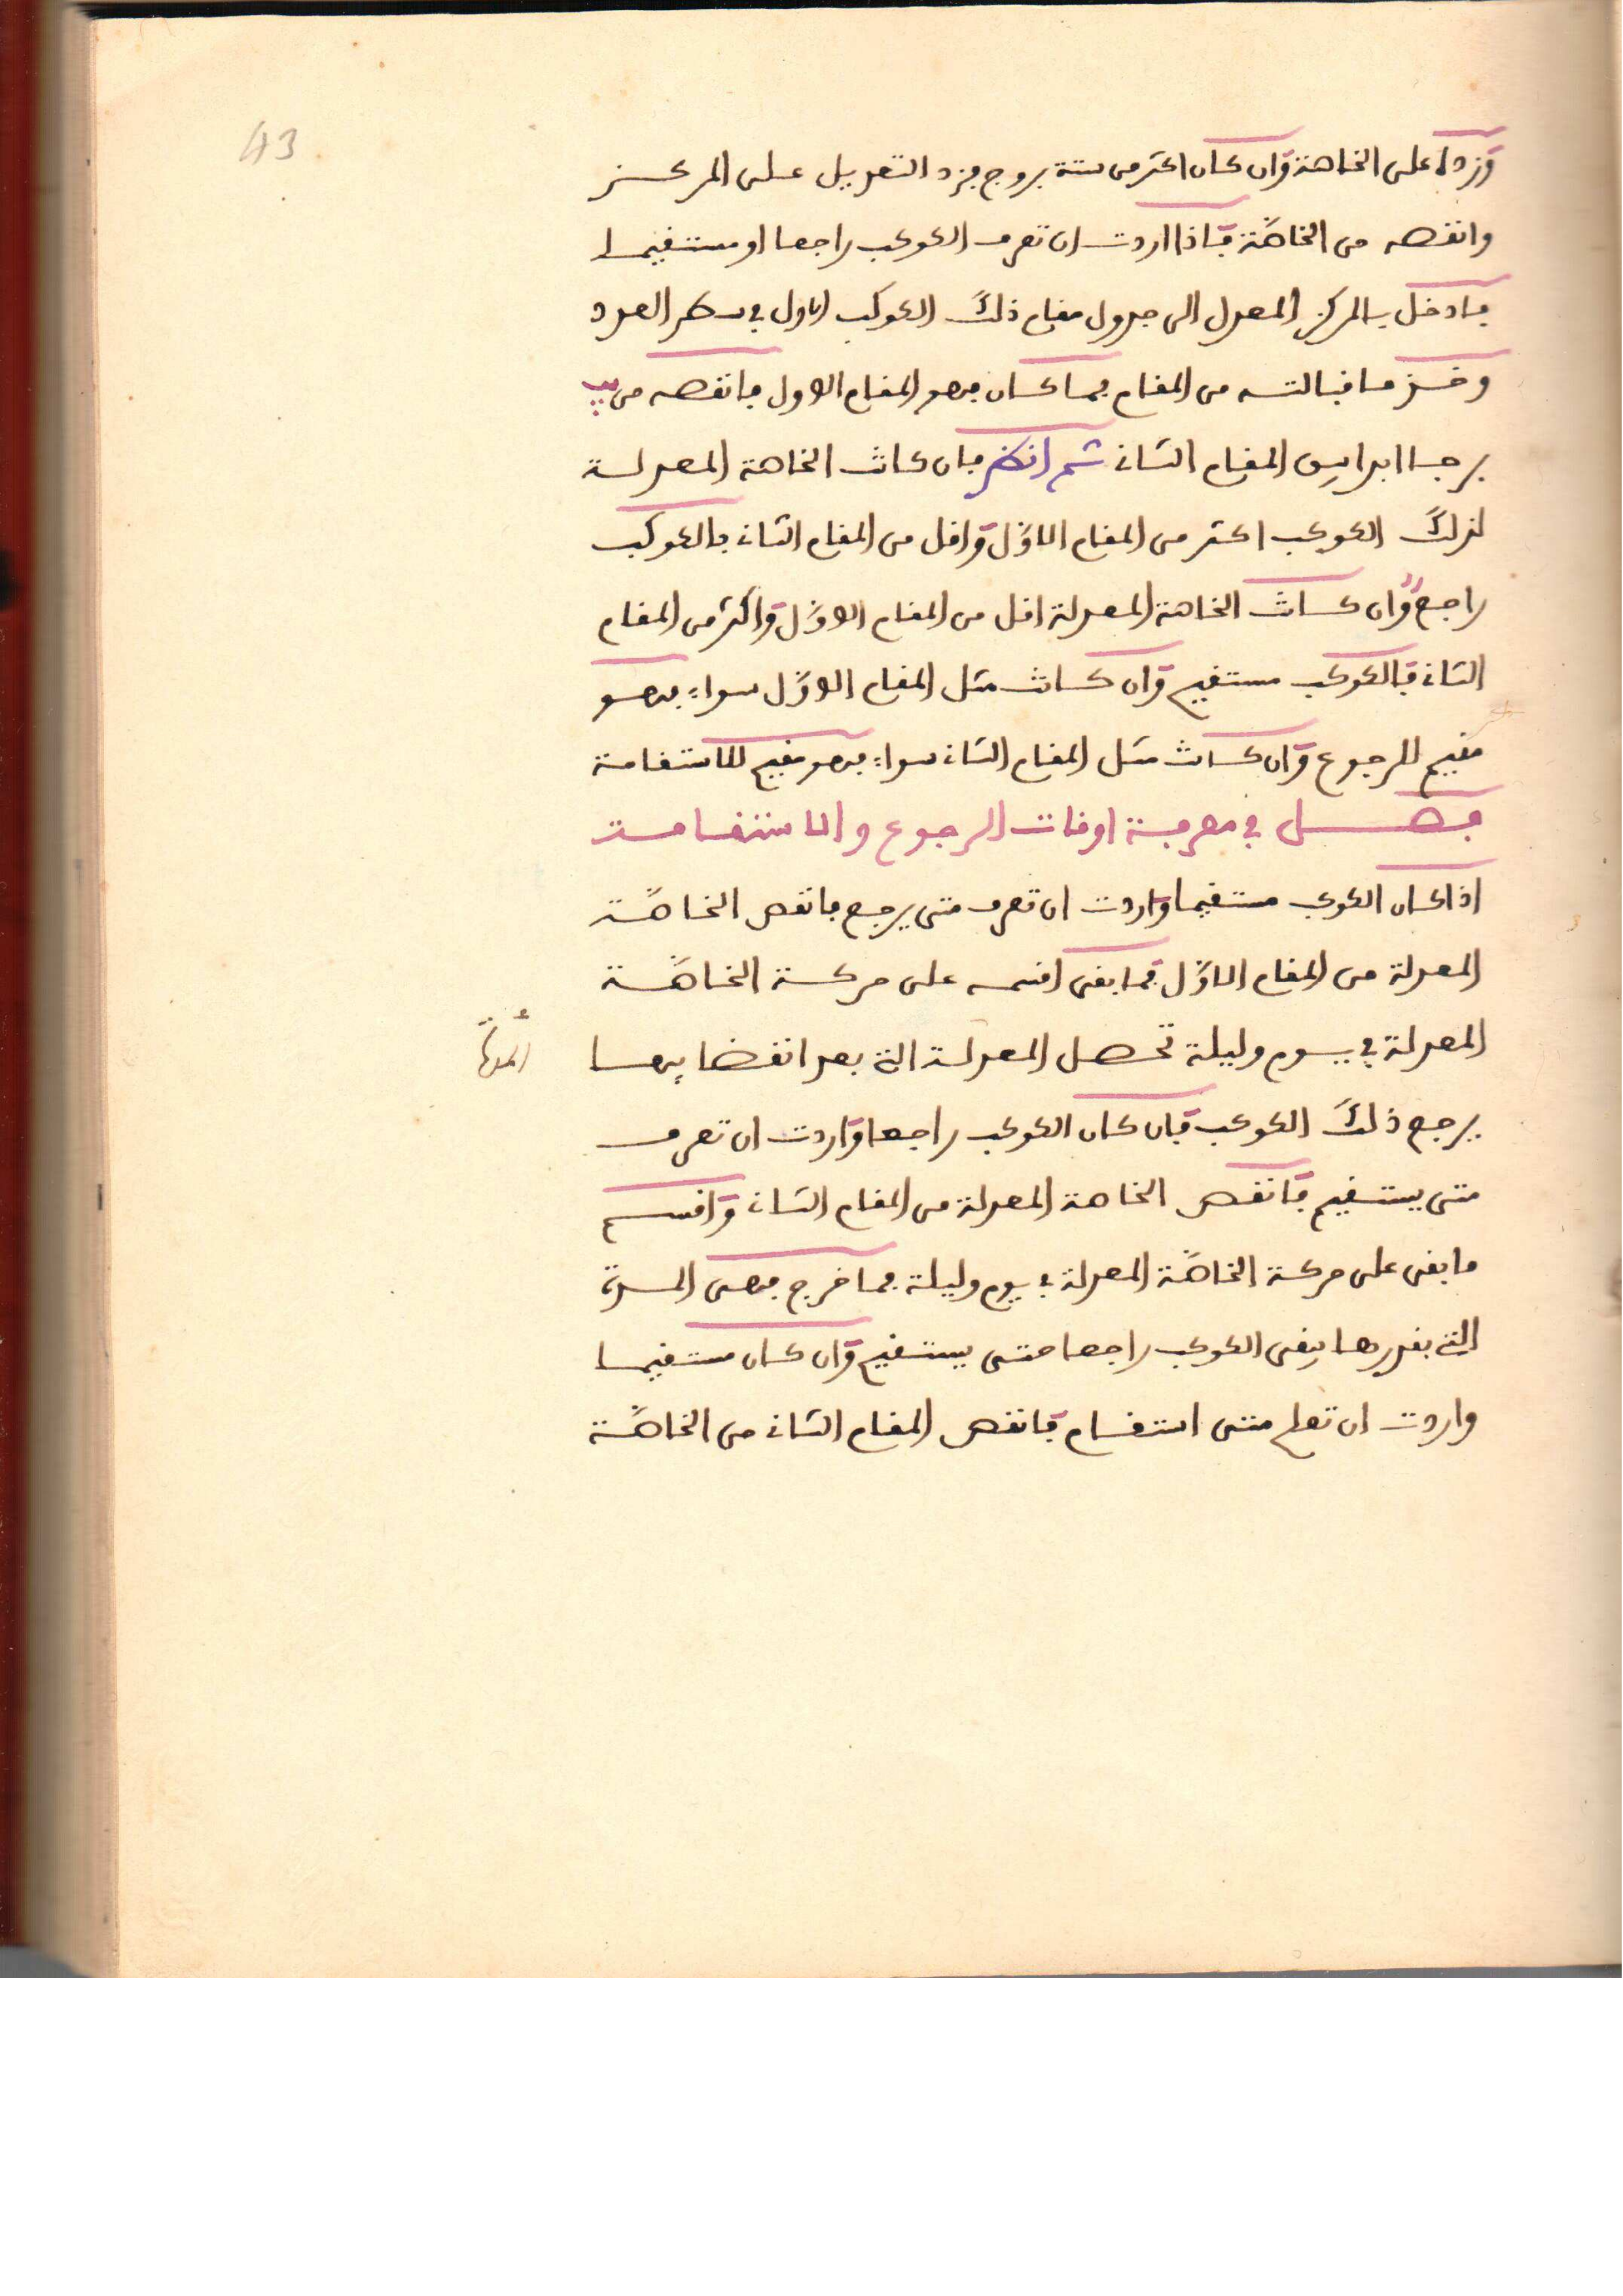 43
وزده على الخاصة وان كان اكثر من ستة بروج فزد التعديل على المركز
وانقصه من الخاصّة فاذا اردت ان تعرف الكوكب راجعا او مستقيما
فادخل بالمركز المعدل الى جدول مقام ذلك الكوكب الاول في سطر العدد
وخذ ما قبالته من المقام فما كان فهو المقام الاول فانقصه من يب
برجا ابدا يبق المقام الثاني ثم انظر فان كانت الخاصة المعدلة
لذلك الكوكب اكثر من المقام الاوّل واقل من المقام الثاني فالكوكب
راجع وان كانت الخاصة المعدلة اقل من المقام الاوّل واكثر من المقام
الثاني فالكوكب مستقيم وان كانت مثل المقام الاوّل سواء فهو
مقيم للرجوع وان كانت مثل المقام الثاني سواء فهو مقيم للاستقامة
فصل في معرفة اوقات الرجوع والاستقامة
اذا كان الكوكب مستقيما واردت ان تعرف متى يرجع فانقص الخاصّة
المعدلة من المقام الاوّل فما بقى اقسمه على حركة الخاصّة
المعدلة في يوم وليلة تحصل المعدلة التي بعد انقضايها
المدة
يرجع ذلك الكوكب فان كان الكوكب راجعا واردت ان تعرف
متى يستقيم فانقص الخاصة المعدلة من المقام الثاني واقسم
ما بقى على حركة الخاصّة المعدلة في يوم وليلة فما خرج فهى المدة
التي بقدرها يبقى الكوكب راجعا حتى يستقيم وان كان مستقيما
واردت ان تعلم متى استقام فانقص المقام الثاني من الخاصّة